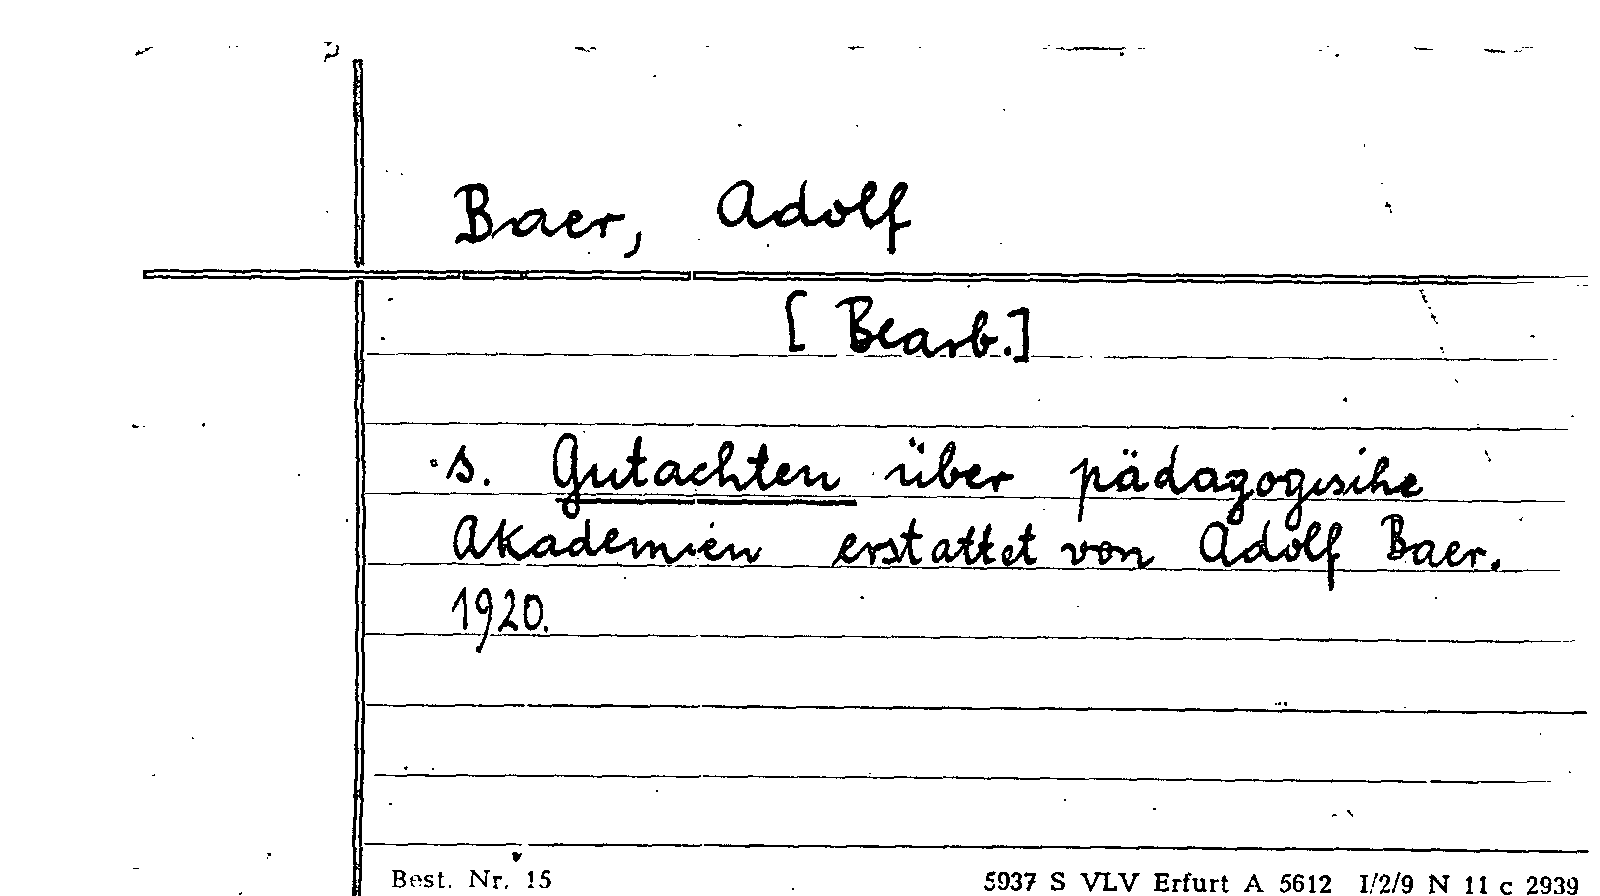 Baer, Adolf
[Bearb.]
s. Gutachten über pädagogische
Akademien erstattet von Adolf Baer.
1920.
Best. Nr. 15 5937 S VLV Erfurt A 5612 I/2/9 N 11 c 2939